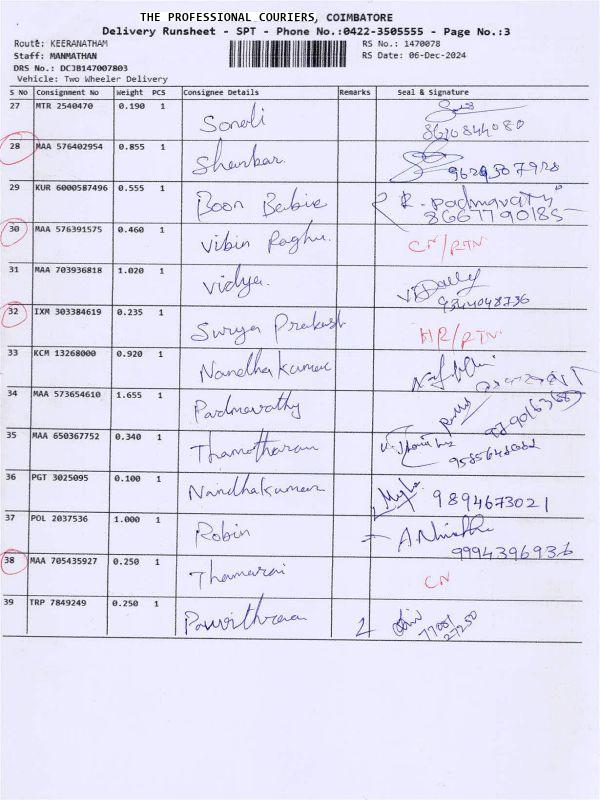 THE PROFESSIONAL COURIERS, COIMBATORE
Delivery Runsheet - SPT - Phone No.:0422-3505555 - Page No.:3
Route: KEERANATHAM RS No.: 1470078
Staff: MANMATHAN RS Date: 06-Dec-2024
DRS No.: DCJB147007803
Vehicle: Two Wheeler Delivery
S No Consignment No Weight PCS Consignee Details Remarks Seal & Signature
27 MTR 2540470 0.190 1 Sonali
8610844080
28 MAA 576402954 0.855 1 Shankar.
29 KUR 6000587496 0.555 1 Boon Babie R. Padmavathy
8667790185
30 MAA 576391575 0.460 1 Vibin Raghu. CN/RTN
31 MAA 703936818 1.020 1 Vidya.
9344048736
32 IXM 303384619 0.235 1 Surya Prakash HR/RTN
33 KCM 13268000 0.920 1 Nandhakumar
34 MAA 573654610 1.655 1 Padmavathy
35 MAA 650367752 0.340 1 Thamotharan
36 PGT 3025095 0.100 1 Nandhakumar 9894673021
37 POL 2037536 1.000 1 Robin
9994396936
38 MAA 705435927 0.250 1 Thamarai CN
39 TRP 7849249 0.250 1 Pavithraa